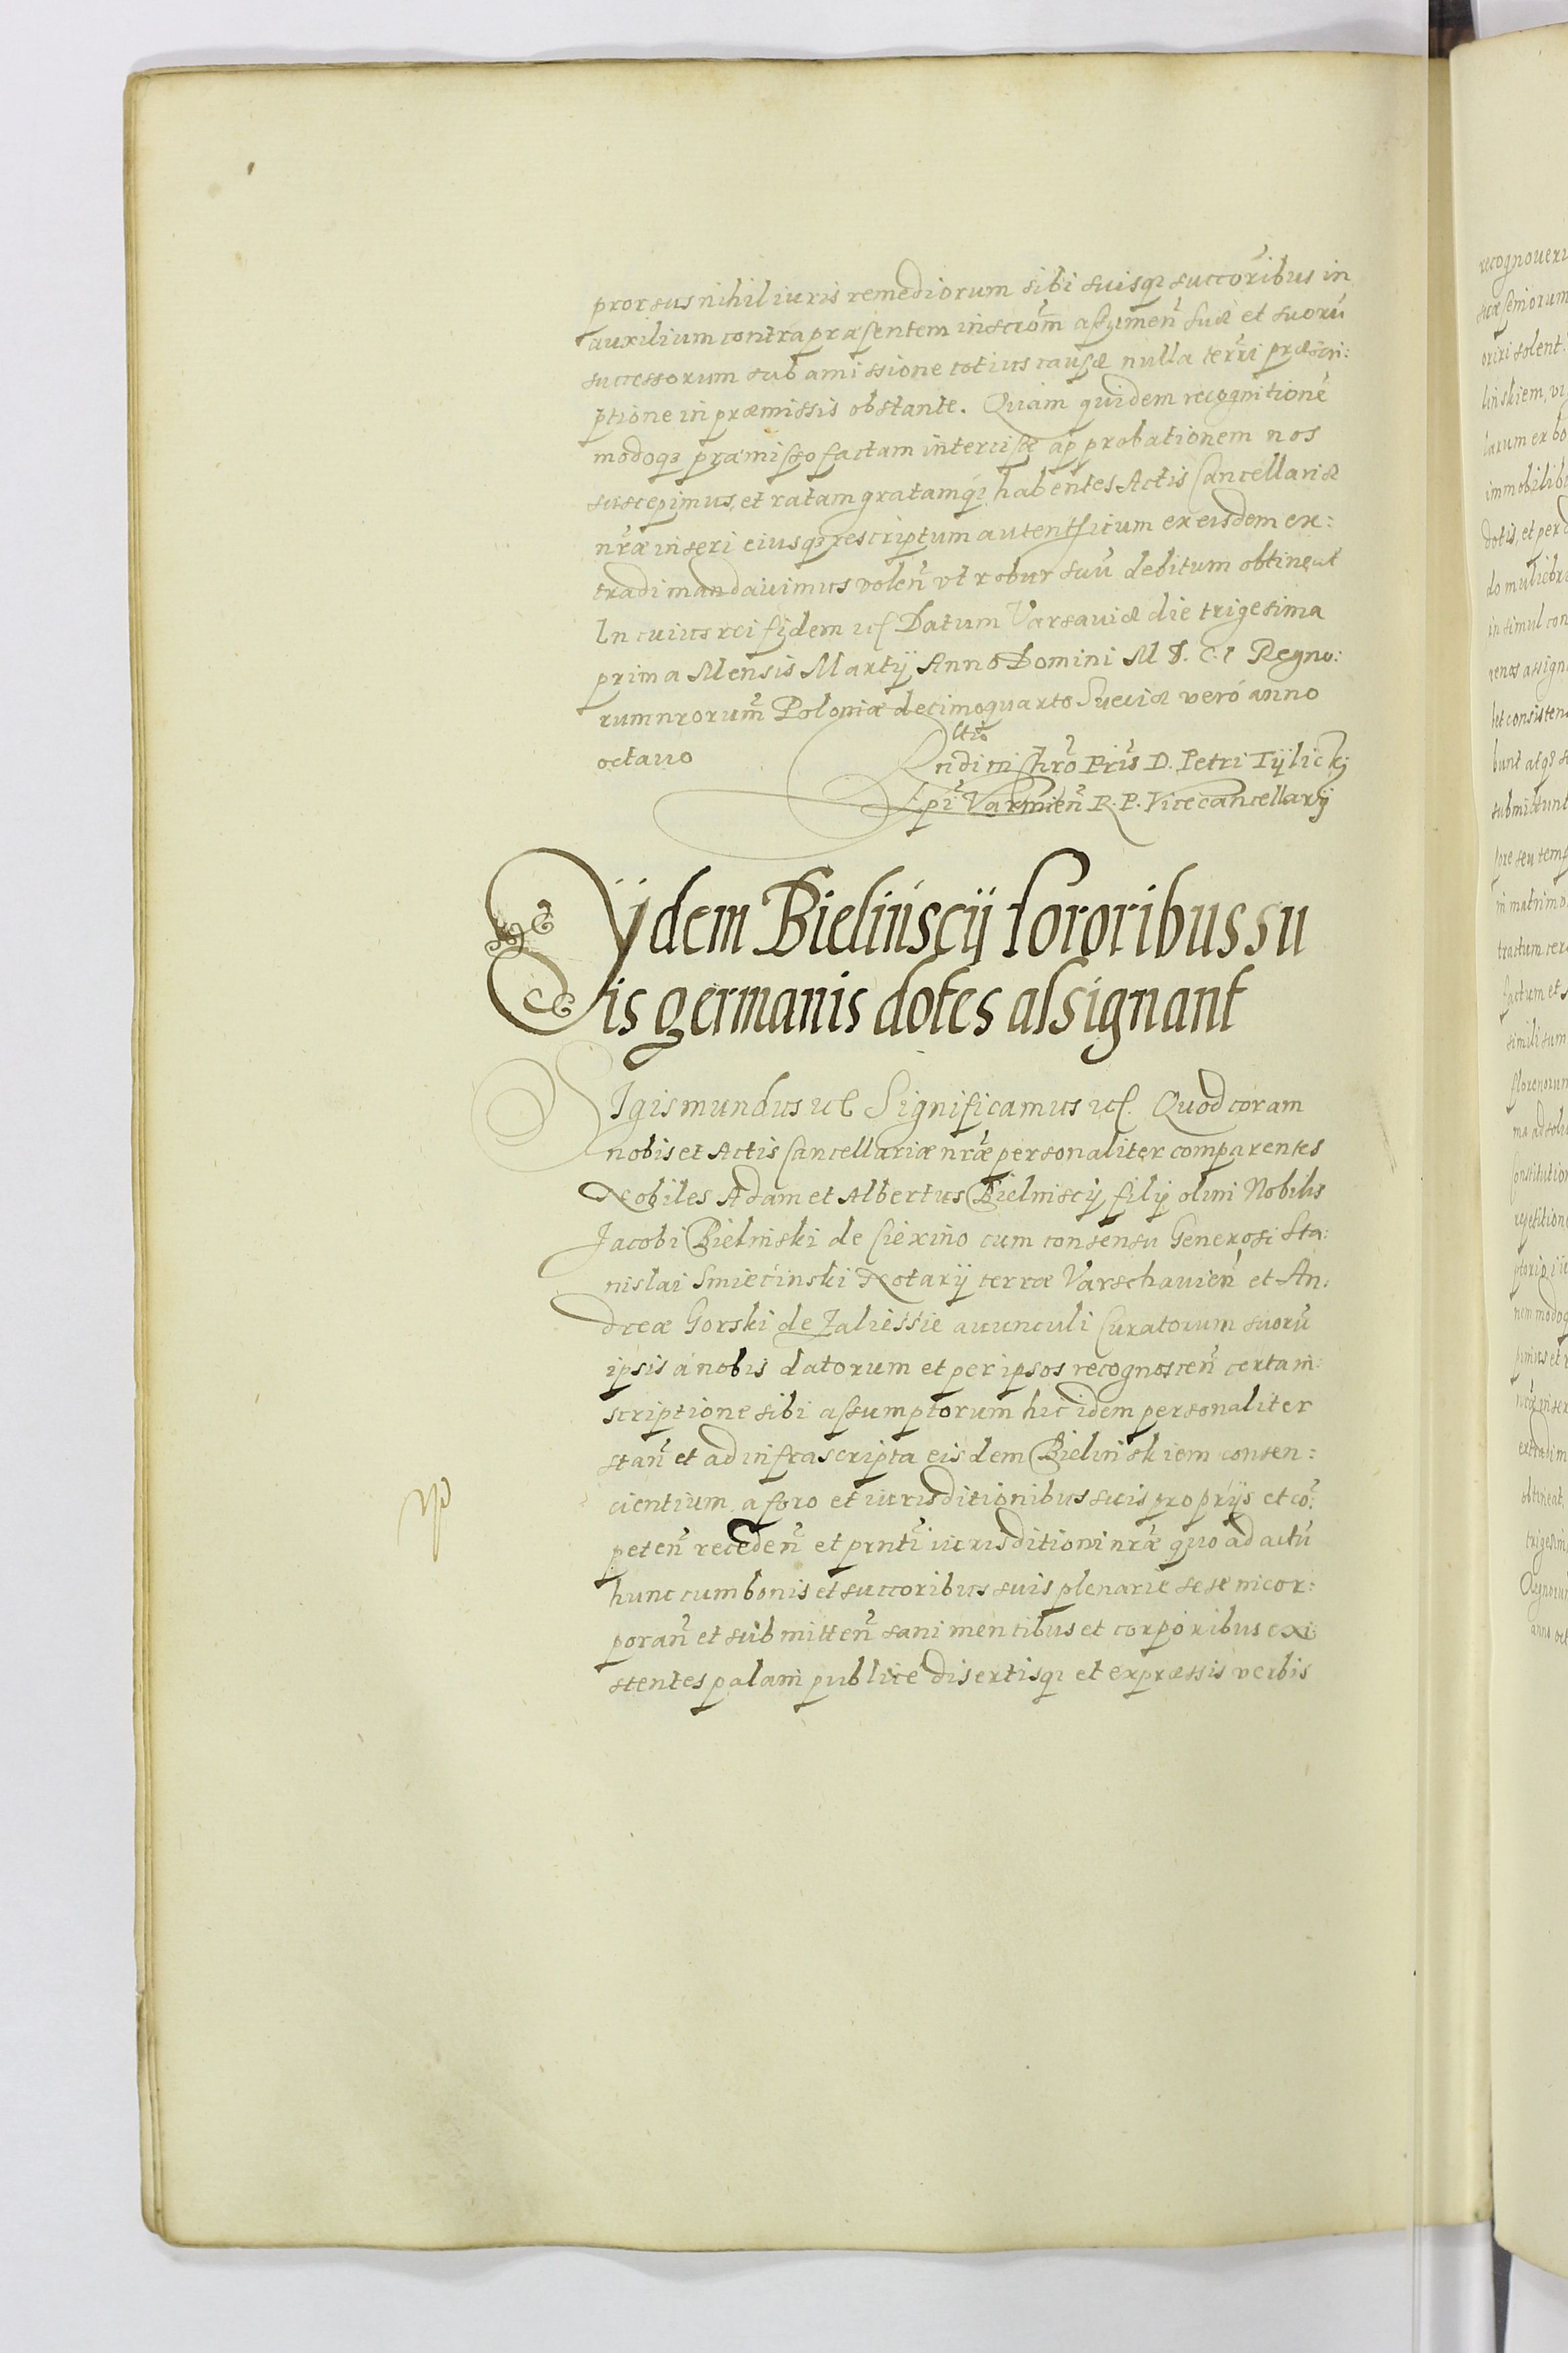 prorsus nihil iuris remediorum sibi suisq; succoribus in
auxilium contra præsentem inscrom assumen̄ suæ et suorū
successorum sub amissione totius causæ nulla terri præscri:
ptione in præmissis obstante. Quam quidem recognitionē
modoq; præmisso factam intercisæ approbationem nos
suscepimus, et ratam gratamq; habentes Actis Cancellariæ
nr̄æ inseri eiusq; rescriptum autenthicum ex eisdem ex:
tradi mandavimus volen̄ vt robur suū debitum obtineat
In cuius rei fidem ꝛc Datum Varsaviæ die trigesima
prima Mensis Martij Anno Domini M D. C. I Regno:
rum nrorum̄ Poloniæ decimoquarto Sueciæ verò anno
octauo
Rndi in Chro Pris D. Petri Tÿlickj
Epi Varmien̄ R. P. Vicecancellarij
Iÿdem Bielinscij sororibus su
is germanis dotes assignant
Sigismundus ꝛc Significamus ꝛc. Quod coram
nobis et Actis Cancellariæ nr̄æ personaliter comparentes
Nobiles Adam et Albertus Bielinscij filij olim Nobilis
Jacobi Bielinski de cum consensu Generosi Sta:
nislai Smiecinski Notarij terræ Varschavien̄ et An:
dreæ Gorski de Zaliessie auunculi Curatorum suorū
ipsis à nobis datorum et per ipsos recognoscen̄ certa in:
scriptione sibi assumptorum hic idem personaliter
stan̄ et ad infrascripta eisdem Bielinskiem consen:
cientium a foro et iurisditionibus suis proprijs et co:
peten̄ receden̄ et prnti iurisditioni nr̄æ quo ad actū
hunc cum bonis et succoribus suis plenarie sese incor:
poran̄ et submitten̄ sani mentibus et corporibus exi
stentes palam publice disertisq; et expræssis verbis
recognoueru
suæ seniorum
oriri solent
linskiem, vi
larum ex bo
immobilib
dotis, et per
do muliebre
insimul con
renos assign
let consisten
bunt atq; s
submittunt
fore seu temp
in matrimo
tractum cer
factum et
simili sum
florenorum
ma ad soli
Constitution
repetitione
nem modoq
pimus et
extradim
obtineat
trigesim
Regnorum
anno oct